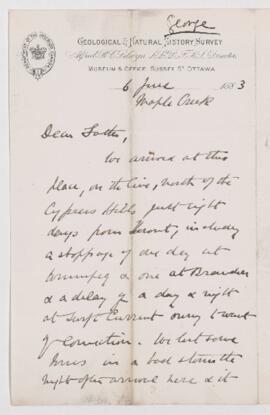 George
GEOLOGICAL & NATURAL HISTORY SURVEY
Alfred R. C. Selwyn, LL.D., F.R.S., Director
MUSEUM & OFFICE, SUSSEX ST OTTAWA
6 June 1883
Maple Creek
Dear Father,
We arrived at this
place, on the line, north of the
Cypress Hills just eight
days from , including
a stoppage of one day at
Winnipeg & one at Brandon
& a delay of a day & night
at Swift Current owing to want
of connection. We lost some
in a bad storm the
night after arrival here & it